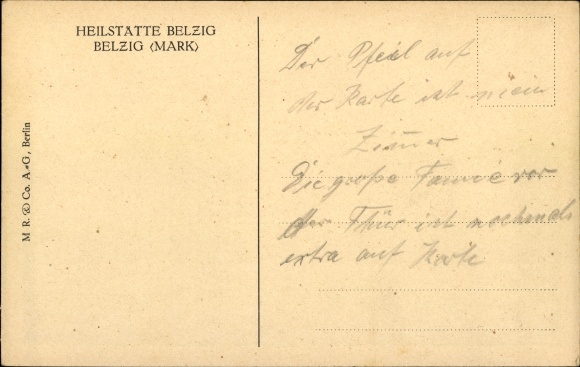 HEILSTÄTTE BELZIG
BELZIG (MARK)
M R. & Co. A.-G., Berlin
Der Pfeil auf
der Karte ist mein
Zimmer
Die große Tanne vor
der Thür ist nochmals
extra auf Karte